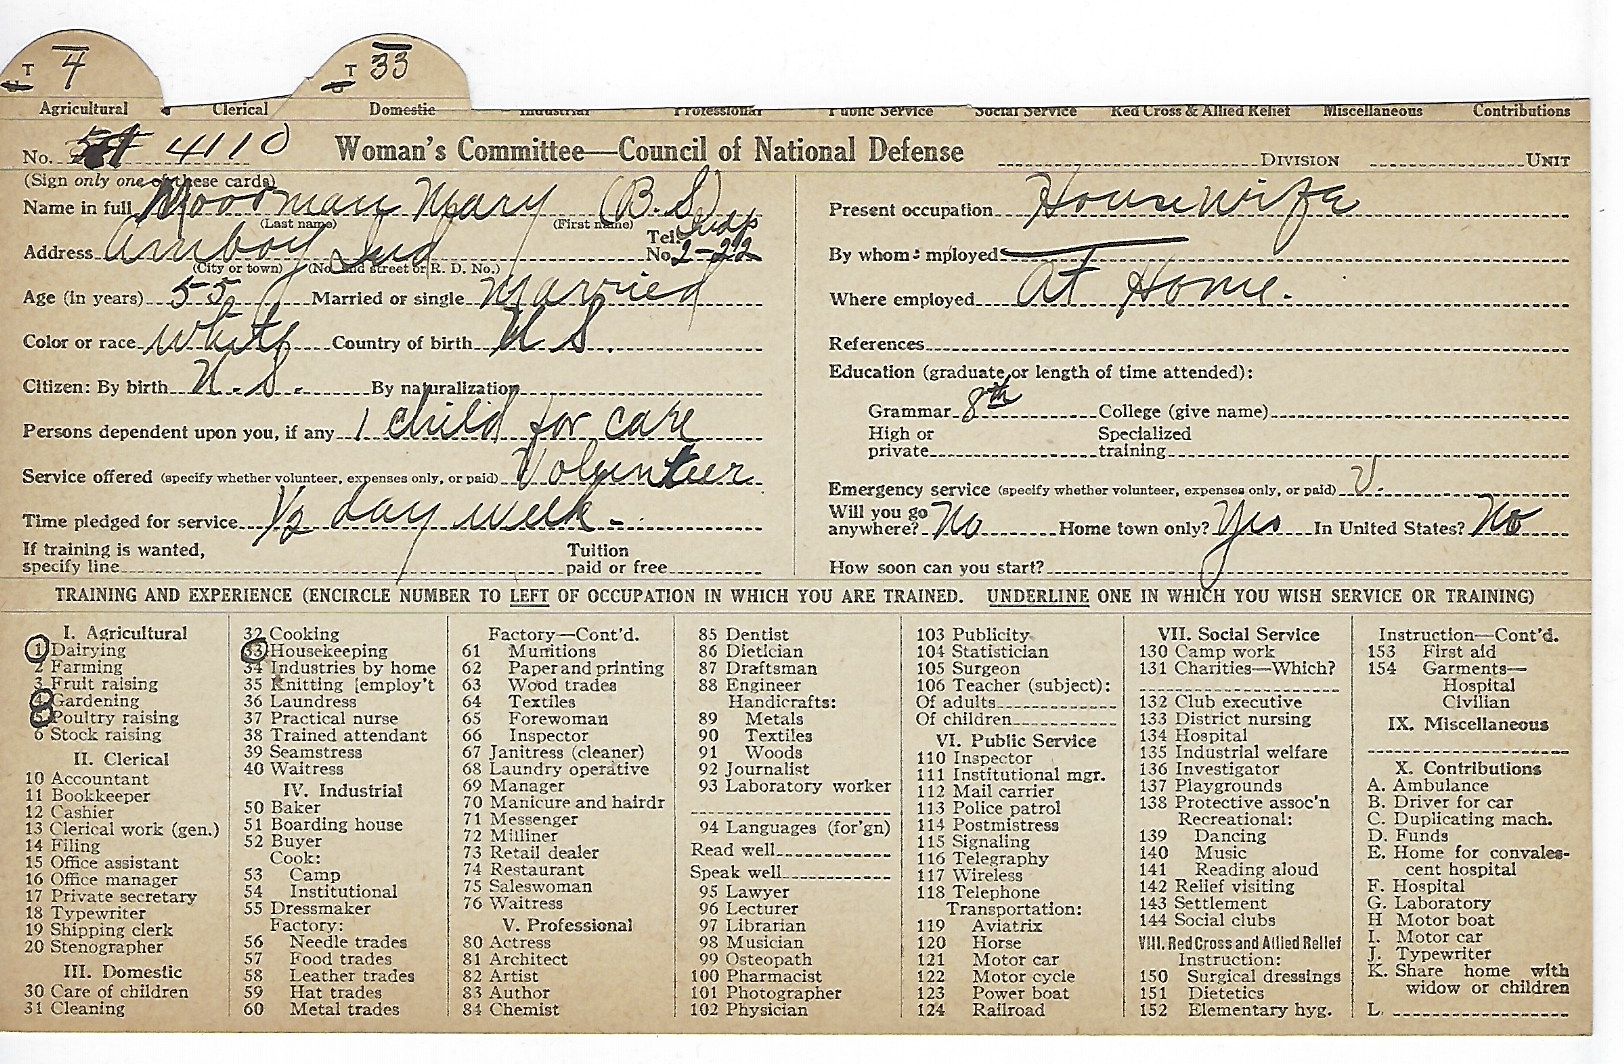 T 4 T 33
Agricultural Clerical Domestic Industrial Professional Public Service Social Service Red Cross & Allied Relief Miscellaneous Contributions
No. 4110 Woman's Committee—Council of National Defense DIVISION UNIT
(Sign only one of these cards)
Name in full Moorman Mary (B.S)
(Last name) (First name)
Address Amboy Ind Tel. No. Indp 2-22
(City or town) (No. and street or R. D. No.)
Age (in years) 55 Married or single Married
Color or race White Country of birth U S.
Citizen: By birth U.S. By naturalization
Persons dependent upon you, if any 1 child for care
Service offered (specify whether volunteer, expenses only, or paid) Volunteer
Time pledged for service 1/2 day week-
If training is wanted, specify line Tuition paid or free
Present occupation Housewife
By whom employed
Where employed At Home.
References
Education (graduate or length of time attended):
Grammar 8th College (give name)
High or private Specialized training
Emergency service (specify whether volunteer, expenses only, or paid) V.
Will you go anywhere? No Home town only? Yes In United States? No
How soon can you start?
TRAINING AND EXPERIENCE (ENCIRCLE NUMBER TO LEFT OF OCCUPATION IN WHICH YOU ARE TRAINED. UNDERLINE ONE IN WHICH YOU WISH SERVICE OR TRAINING)
I. Agricultural
1 Dairying
2 Farming
3 Fruit raising
4 Gardening
5 Poultry raising
6 Stock raising
II. Clerical
10 Accountant
11 Bookkeeper
12 Cashier
13 Clerical work (gen.)
14 Filing
15 Office assistant
16 Office manager
17 Private secretary
18 Typewriter
19 Shipping clerk
20 Stenographer
III. Domestic
30 Care of children
31 Cleaning
32 Cooking
33 Housekeeping
34 Industries by home
35 Knitting [employ't
36 Laundress
37 Practical nurse
38 Trained attendant
39 Seamstress
40 Waitress
IV. Industrial
50 Baker
51 Boarding house
52 Buyer
Cook:
53 Camp
54 Institutional
55 Dressmaker
Factory:
56 Needle trades
57 Food trades
58 Leather trades
59 Hat trades
60 Metal trades
Factory—Cont'd.
61 Munitions
62 Paper and printing
63 Wood trades
64 Textiles
65 Forewoman
66 Inspector
67 Janitress (cleaner)
68 Laundry operative
69 Manager
70 Manicure and hairdr
71 Messenger
72 Milliner
73 Retail dealer
74 Restaurant
75 Saleswoman
76 Waitress
V. Professional
80 Actress
81 Architect
82 Artist
83 Author
84 Chemist
85 Dentist
86 Dietician
87 Draftsman
88 Engineer
Handicrafts:
89 Metals
90 Textiles
91 Woods
92 Journalist
93 Laboratory worker
94 Languages (for'gn)
Read well
Speak well
95 Lawyer
96 Lecturer
97 Librarian
98 Musician
99 Osteopath
100 Pharmacist
101 Photographer
102 Physician
103 Publicity
104 Statistician
105 Surgeon
106 Teacher (subject):
Of adults
Of children
VI. Public Service
110 Inspector
111 Institutional mgr.
112 Mail carrier
113 Police patrol
114 Postmistress
115 Signaling
116 Telegraphy
117 Wireless
118 Telephone
Transportation:
119 Aviatrix
120 Horse
121 Motor car
122 Motor cycle
123 Power boat
124 Railroad
VII. Social Service
130 Camp work
131 Charities—Which?
132 Club executive
133 District nursing
134 Hospital
135 Industrial welfare
136 Investigator
137 Playgrounds
138 Protective assoc'n
Recreational:
139 Dancing
140 Music
141 Reading aloud
142 Relief visiting
143 Settlement
144 Social clubs
VIII. Red Cross and Allied Relief
Instruction:
150 Surgical dressings
151 Dietetics
152 Elementary hyg.
Instruction—Cont'd.
153 First aid
154 Garments—
Hospital
Civilian
IX. Miscellaneous
X. Contributions
A. Ambulance
B. Driver for car
C. Duplicating mach.
D. Funds
E. Home for convales-
cent hospital
F. Hospital
G. Laboratory
H Motor boat
I. Motor car
J. Typewriter
K. Share home with
widow or children
L.